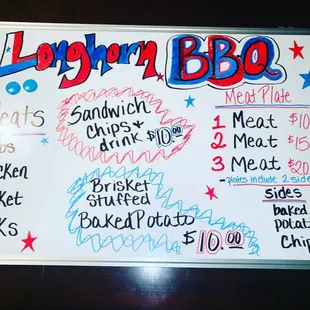 Longhorn BBQ
Sandwich
chips &
drink $10.00
Brisket
Stuffed
Baked Potato
$10.00
Meat Plate
1 Meat $10
2 Meat $15
3 Meat $20
-plates include 2 side
sides
baked
potat
Chip